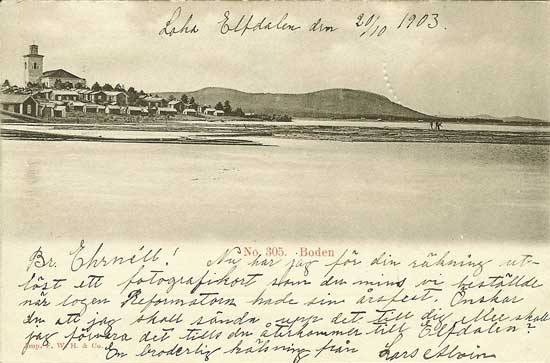 Loka Elfdalen den 20/10 1903.
No. 305. Boden
Br. Ehrnéll! Nu har jag för din räkning ut-
löst ett fotografikort som du minns vi beställde
när logen Reformatorn hade sin årsfest. Önskar
du att jag skall sända upp det till dig eller skall
jag förvara det tills du återkommer till Elfdalen?
En broderlig hälsning från Lars
Imp. J. W. H. & Co.